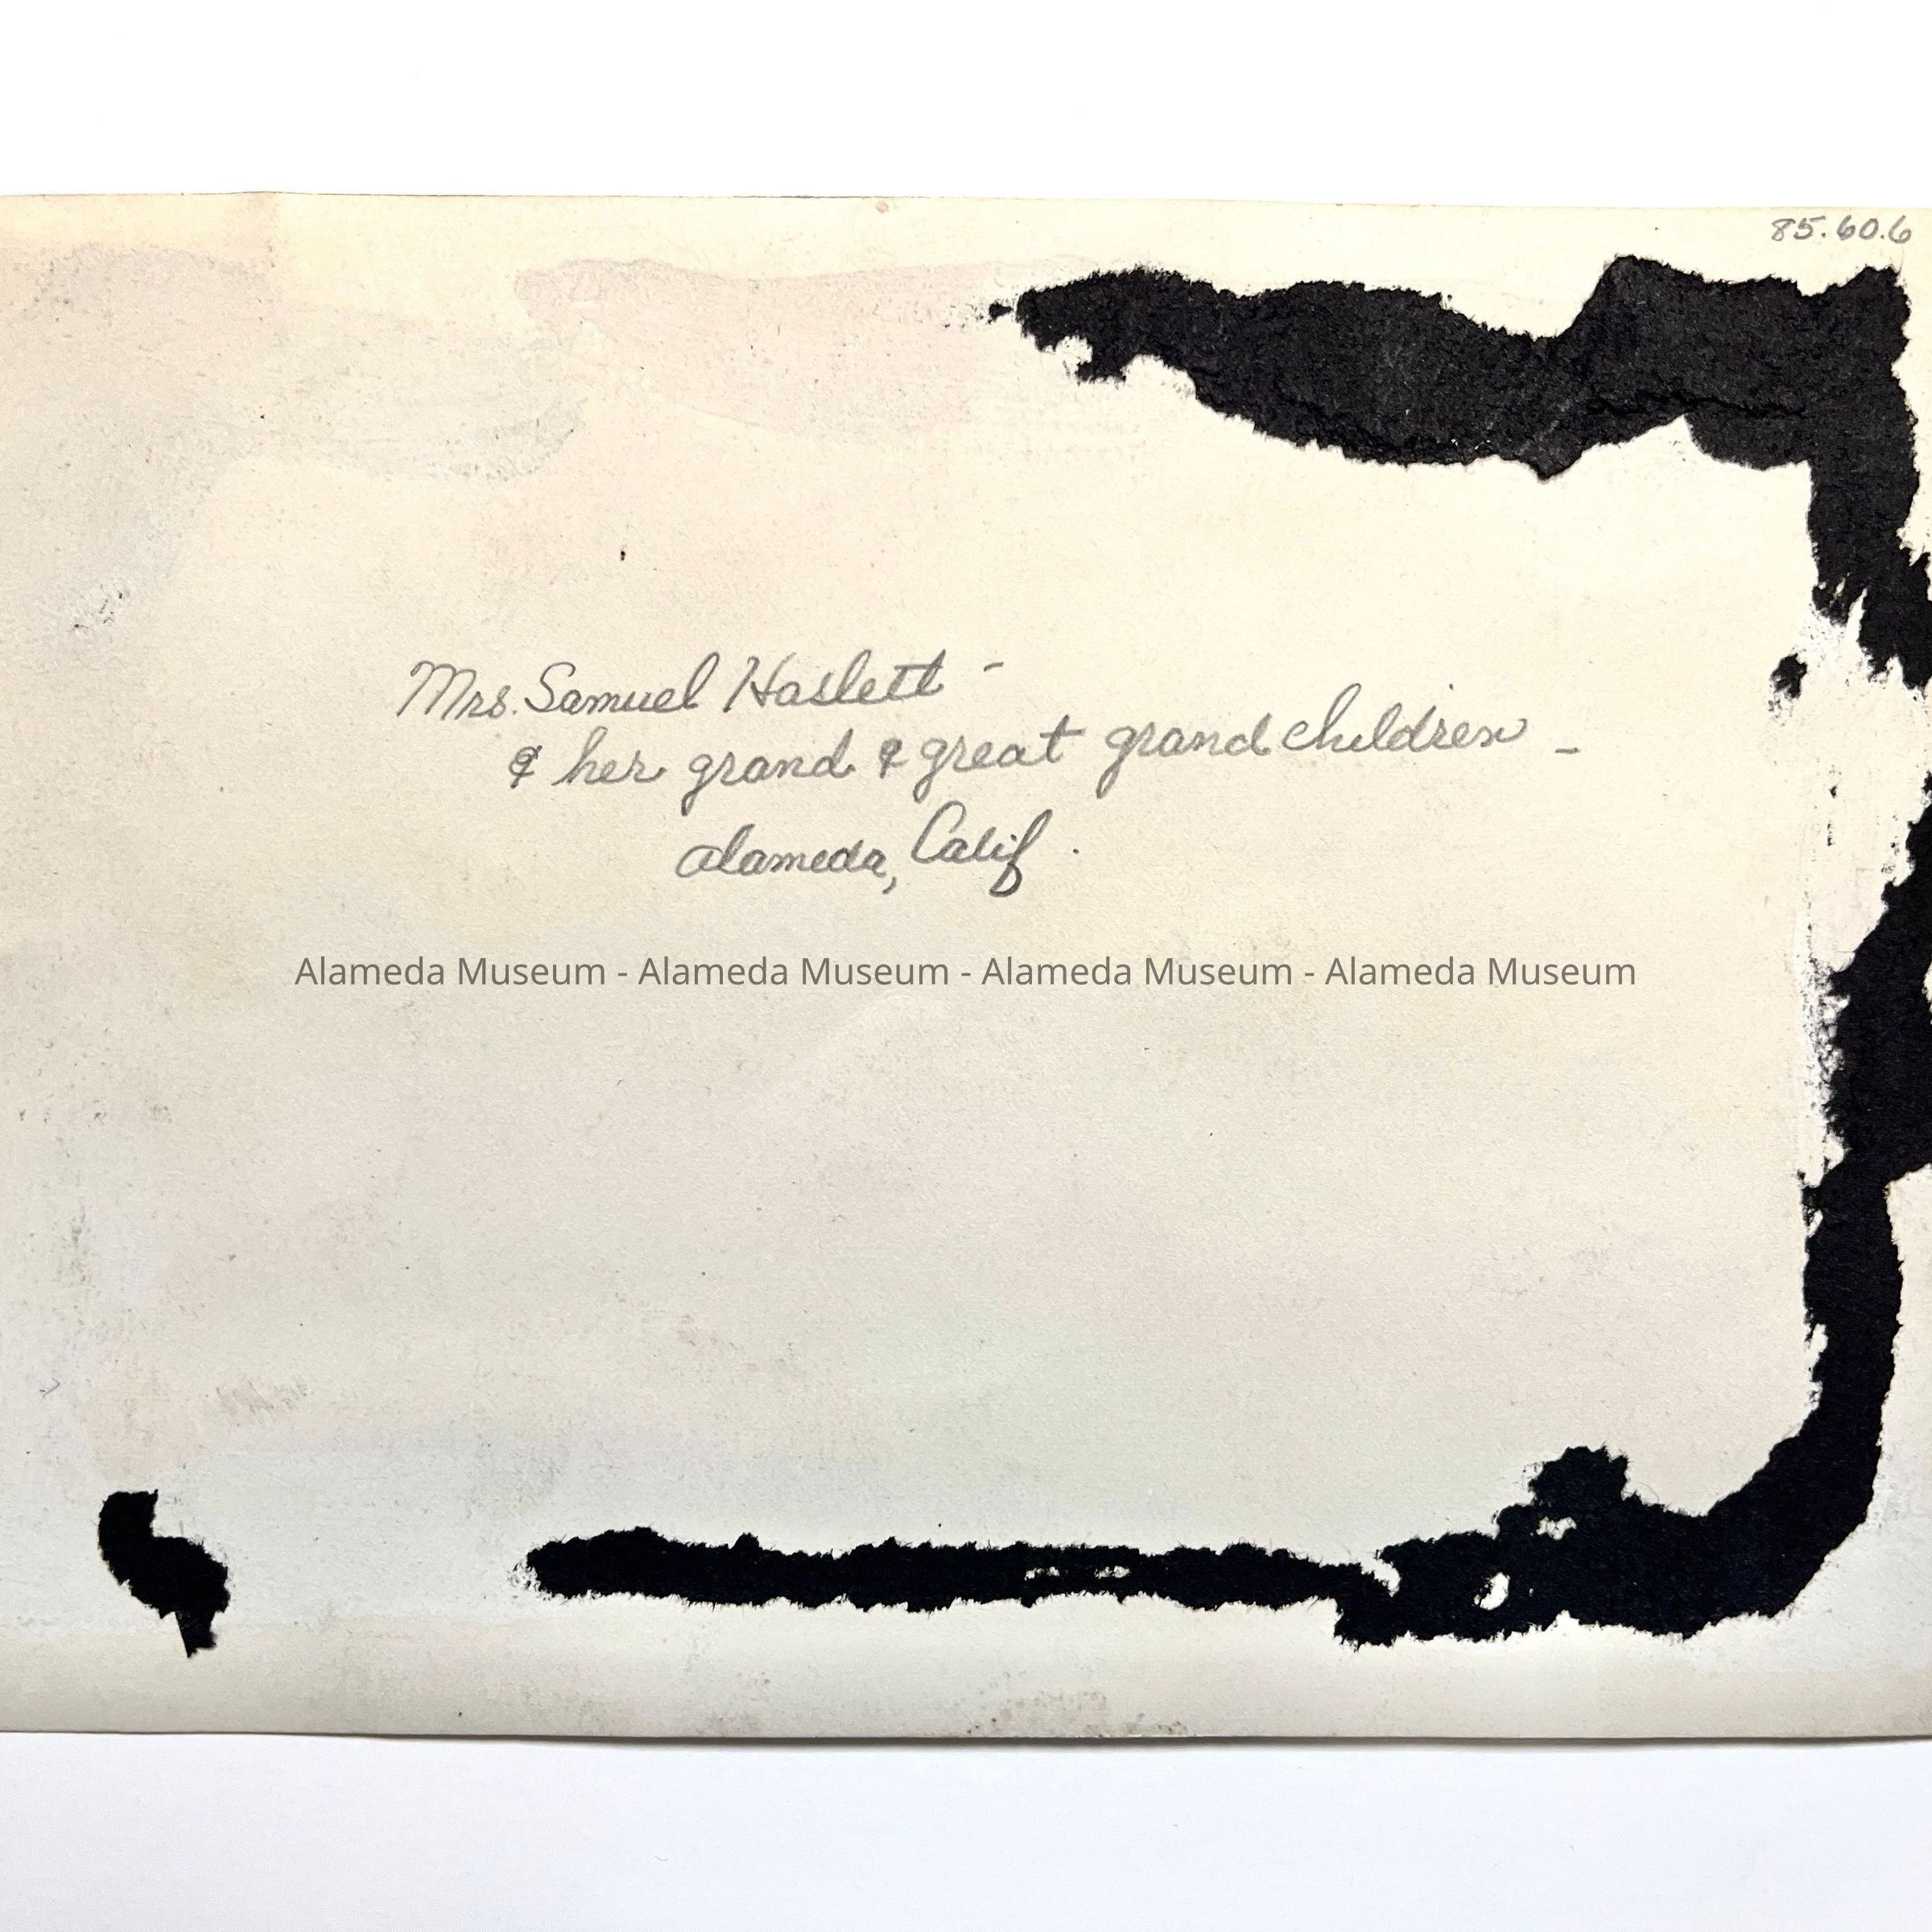 85.60.6
Mrs. Samuel Haslett -
& her grand & great grand children -
Alameda, Calif.
Alameda Museum - Alameda Museum - Alameda Museum - Alameda Museum